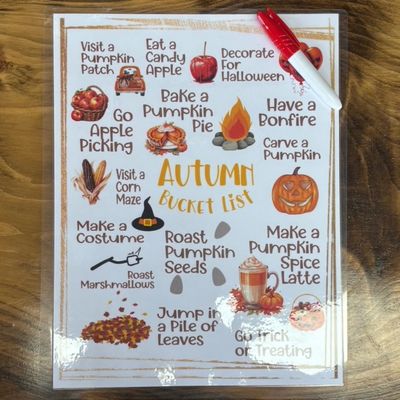 Visit a
Pumpkin
Patch
Eat a
Candy
Apple
Decorate
For
Halloween
Go
Apple
Picking
Bake a
Pumpkin
Pie
Have a
Bonfire
Carve a
Pumpkin
Visit a
Corn
Maze
AUTUMN
BUCKET LIST
Make a
Costume
Roast
Marshmallows
Roast
Pumpkin
Seeds
Make a
Pumpkin
Spice
Latte
Jump in
a Pile of
Leaves
Go Trick
or Treating